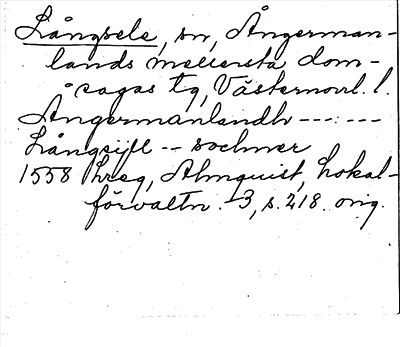 Långsele, sn, Ångerman-
lands mellersta dom-
sagas tg, Västernorrl. l.
Ångermanlandh --- : ---
Långsijll -- sochner
1558 hreg, Almquist, Lokal-
förvaltn. -3, s. 218. orig.